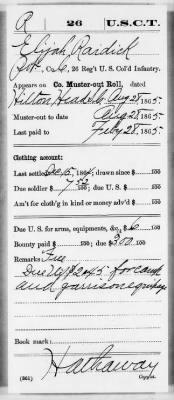 R 26 U.S.C.T.
Elijah Rardick
Pvt., Co. C, 26 Reg't U. S. Col'd Infantry.
Appears on Co. Muster-out Roll, dated
Hilton Head S.C. Aug 28, 1865.
Muster-out to date Aug 28, 1865.
Last paid to Feby 28, 1865.
Clothing account:
Last settled Dec 5, 1864; drawn since $ 100
Due soldier $ 7 100; due U. S. $ 100
Am't for cloth'g in kind or money adv'd $ 100
Due U. S. for arms, equipments, &c., $ 6 100
Bounty paid $ 100; due $ 300 100
Remarks: Free
Due U.S. for camp
and garrison equipage
Book mark:
Hathaway
(361) Copyist.